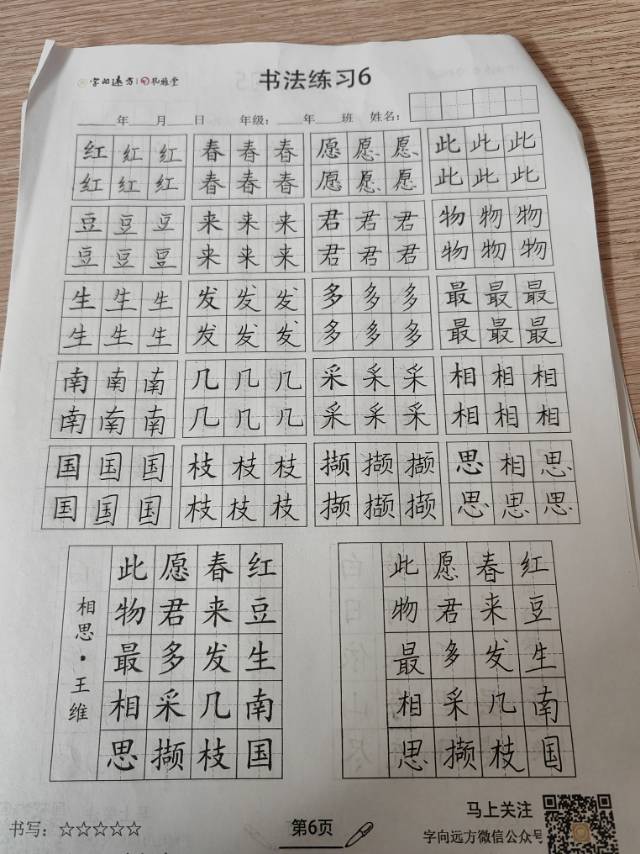 字向远方
书法练习6
年 月 日 年级： 年 班 姓名：
红 红 红 春 春 春 愿 愿 愿 此 此 此
红 红 红 春 春 春 愿 愿 愿 此 此 此
豆 豆 豆 来 来 来 君 君 君 物 物 物
豆 豆 豆 来 来 来 君 君 君 物 物 物
生 生 生 发 发 发 多 多 多 最 最 最
生 生 生 发 发 发 多 多 多 最 最 最
南 南 南 几 几 几 采 采 采 相 相 相
南 南 南 几 几 几 采 采 采 相 相 相
国 国 国 枝 枝 枝 撷 撷 撷 思 相 思
国 国 国 枝 枝 枝 撷 撷 撷 思 思 思
红豆生南国
春来发几枝
愿君多采撷
此物最相思
相思·王维
红豆生南国
春来发凡枝
愿君多采撷
此物最相思
书写：☆☆☆☆☆
第6页
马上关注
字向远方微信公众号